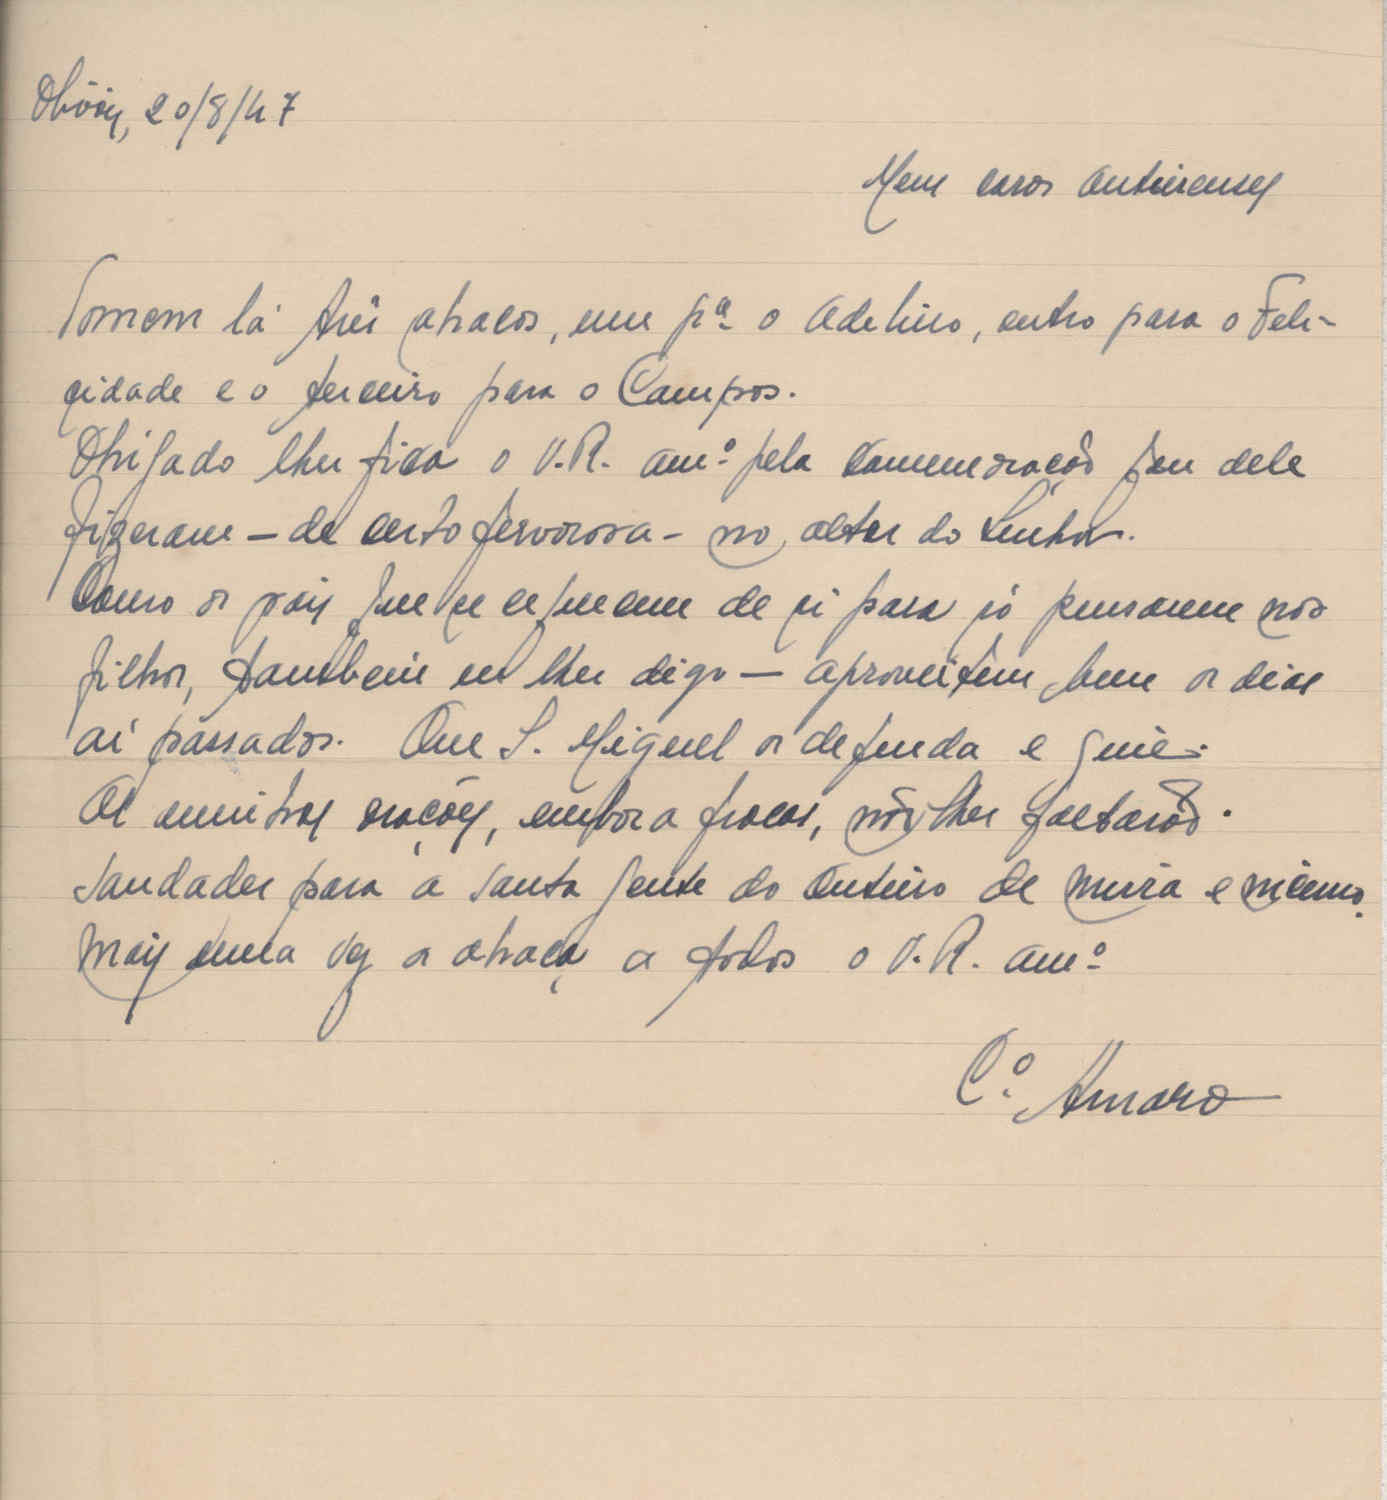 Obóis, 20/8/47
Meus caros outeirenses
Tomem lá três abraços, um pª o Adelino, outro para o Feli-
cidade e o terceiro para o Campos.
Obrigado lhes fica o V. R. amº pela comemoração que dele
fizeram – de certo fervorosa – no altar do Senhor.
Como os pais que se esquecem de si para só pensarem nos
filhos, também eu lhes digo — aproveitem bem os dias
aí passados. Que S. Miguel os defenda e guie.
As minhas orações, embora fracas, não lhes faltarão.
Saudades para a santa gente do Outeiro de Muia e
Mais uma vez os abraça a todos o V. R. amº
Cº Amaro